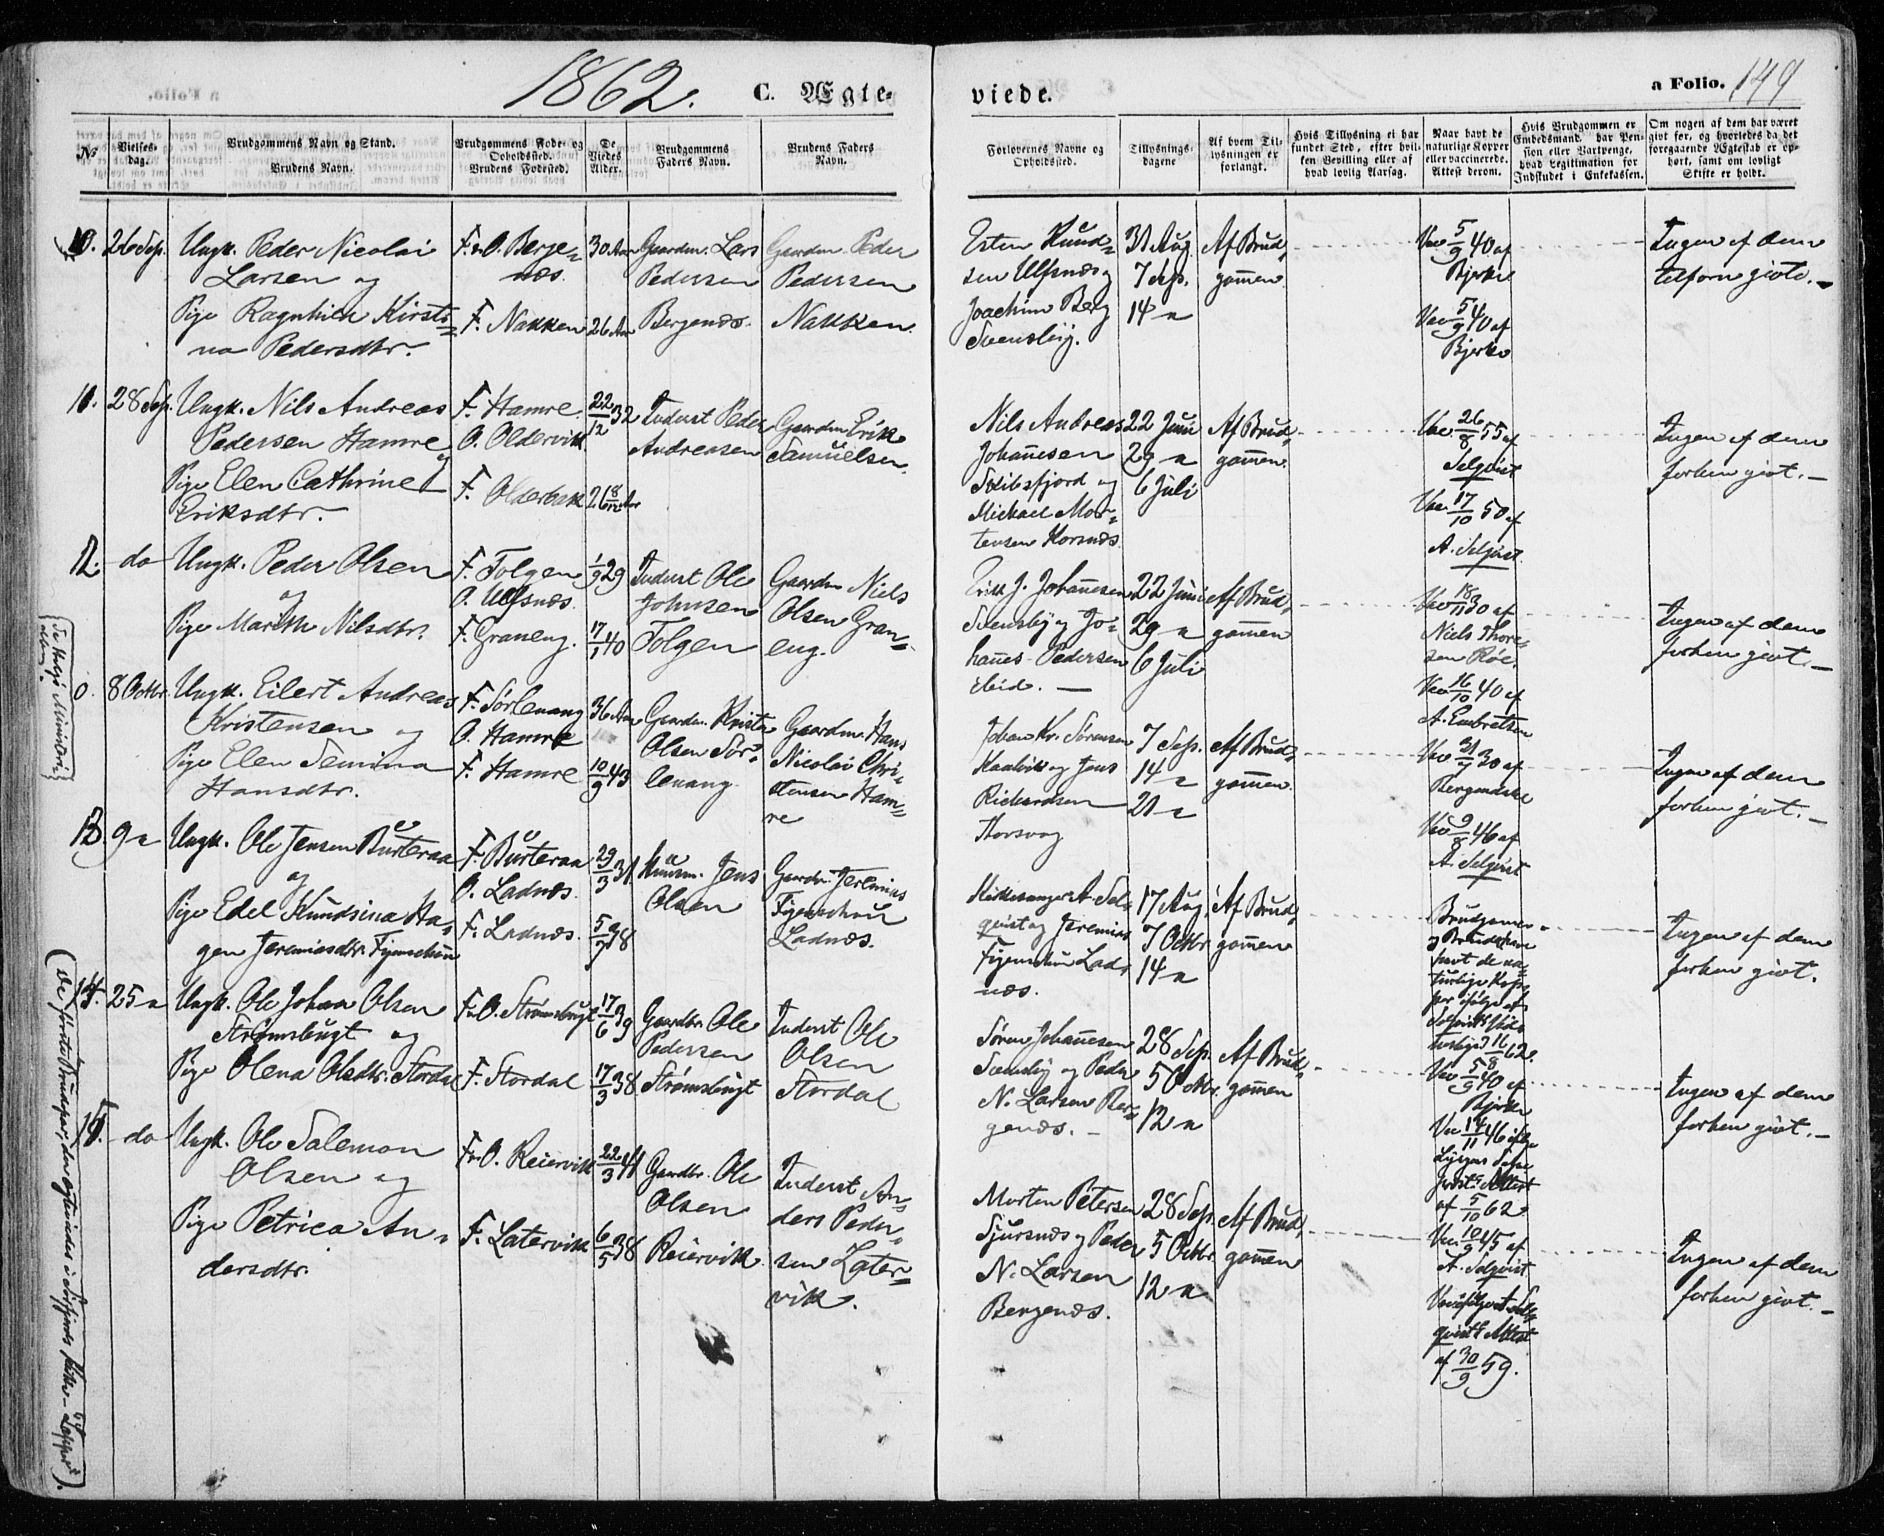 1862. C. Ægte-
viede.
a Folio. 149
No
Vielses-dag.
Brudgommens Navn og Stand.
Brudens Navn.
Brudgommens Føde- og Opholdssted.
Brudens Fødested.
De Viedes Alder.
Brudgommens Faders Navn.
Brudens Faders Navn.
Forlovernes Navne og Opholdssted.
Tillysnings-dagene
Af hvem Til-lysningen er forlangt.
Hvis Tillysning ei har fundet Sted, efter hvil-ken Bevilling eller af hvad lovlig Aarsag.
Naar havt de naturlige Kopper eller vaccinerede. Attest derom.
Hvis Brudgommen er Embedsmand, har Pen-sion eller Vartpenge, hvad Legitimation for Indskudet i Enkekassen.
Om nogen af dem har været givt før, og hvorledes da det foregaaende Ægteskab er op-hørt, samt om lovligt Skifte er holdt.
10. 26 Sep. Ungk. Peder Nicolai
Larsen og
Pige Ragnhild Kirsti-
na Pedersdtr.
F. & O. Berge-
næs.
F. Nakken
30 Aar
26 Aar
Gaardm. Lars
Pedersen
Bergenæs.
Gaardm. Peder
Pedersen
Nakken.
Esten Knud-
sen Ulfsnæs og
Joachim Berg
Svensby.
31 Aug.
7 Sep.
14 "
Af Brud-
gommen
Vac 5/9 40 af
Bjerke
Vac 5/9 40 af
Bjerke
Ingen af dem
tilforn givte.
11. 28 Sep. Ungk. Nils Andreas
Pedersen Hamre og
Pige Elen Cathrine
Eriksdtr.
F. Hamre.
O. Oldervik.
F. Olderbak
22/12 32
26 8/12 Aar
Inderst Peder
Andreasen
Gaardm Erik
Samuelsen.
Nils Andreas
Johannesen
Skibsfjord og
Michael Mor-
tensen Kornæs
22 Juni
29 "
6 Juli
Af Brud-
gommen.
Vac. 26/8 55 af
Selqvist
Vac. 17/10 50 af
A. Selqvist.
Ingen af dem
forhen givt.
12. do Ungk. Peder Olsen
og
Pige Marith Nilsdtr.
F. Folgen
O. Ulfsnæs.
F. Graneng.
1/9 29
17/1 40
Inderst Ole
Johnsen
Folgen
Gaardm Niels
Olsen Gran-
eng.
Erik J. Johannesen
Svensby og Jo-
hannes Pedersen
Eid.
22 Juni
29 "
6 Juli
Af Brud-
gommen
Vac 18/11 30 af
Niels Thore-
sen Røe.
Vac 16/10 40 af
A. Embretsen
Ingen af dem
forhen givt.
0. 8 Octbr. Ungk. Eilert Andreas
Kristensen og
Pige Elen Semina
Hansdtr.
F. Sørlenang
O. Hamre
F. Hamre
36 Aar
10/9 43
Gaardm. Kristen
Olsen Sør-
lenang
Gaardm. Hans
Nicolai Chri-
stensen Ham-
re
Johan Kr. Sørensen
Kaalvik og Jens
Richardsen
Korsvog
7 Sep.
14 "
21 "
Af Brud-
gommen.
Vac 21/9 30 af
Vac 9/8 46 af
A. Selqvist
Ingen af dem
forhen givt.
13. 9 " Ungk. Ole Jensen Burteraa
og
Pige Edel Kundsina Ha-
gen Jeremiasdtr. Figenschou
F. Burteraa
O. Ladnæs.
F. Ladnæs.
29/3 31
5/7 38
Huusm. Jens
Olsen
Gaardm. Jeremias
Figenschou
Ladnæs.
Kirkesanger A. Sel-
qvist og Jeremias
Figenschou Lad-
næs.
17 Aug.
7 Octbr.
14 "
Af Brud-
gommen
Brudgommen
og Bruden have
havt de na-
turlige Kop-
per ifølge af
Ingen af dem
forhen givt.
14. 25 " Ungk. Ole Johan Olsen
Strømsbugt og
Pige Olena Olsdtr. Stordal
F. & O. Strømsbugt
F. Stordal
17/6 39
17/3 38
Gaardbr. Ole
Pedersen
Strømsbugt
Inderst Ole
Olsen
Stordal
Søren Johannesen
Svensby og Peder
N. Larsen Ber-
genæs.
28 Sep.
5 Octbr.
12 "
Af Brud-
gommen
Vac 5/9 40 af
Bjerke
Vac 14/11 46 ifølge
Attest
af 5/10 62.
Ingen af dem
forhen givt.
15. do Ungk. Ole Salemon
Olsen og
Pige Petrica An-
dersdtr.
F. & O. Reiervik
F. Latervik
22/3 41
6/5 38
Gaardbr. Ole
Olsen
Reiervik
Inderst An-
ders Peder-
sen Later-
vik.
Morten Petersen
Sjursnæs og Peder
N. Larsen
Bergenæs.
28 Sep.
5 Octbr.
12 "
Af Brud-
gommen
Vac. 10/9 45 af
A. Selqvist.
Vac ifølge Sel-
qvists Attest
af 30/9 59.
Ingen af dem
forhen givt.
(De første Brudpar, der ægtevies i Sørfjords Kirke – Lapper).